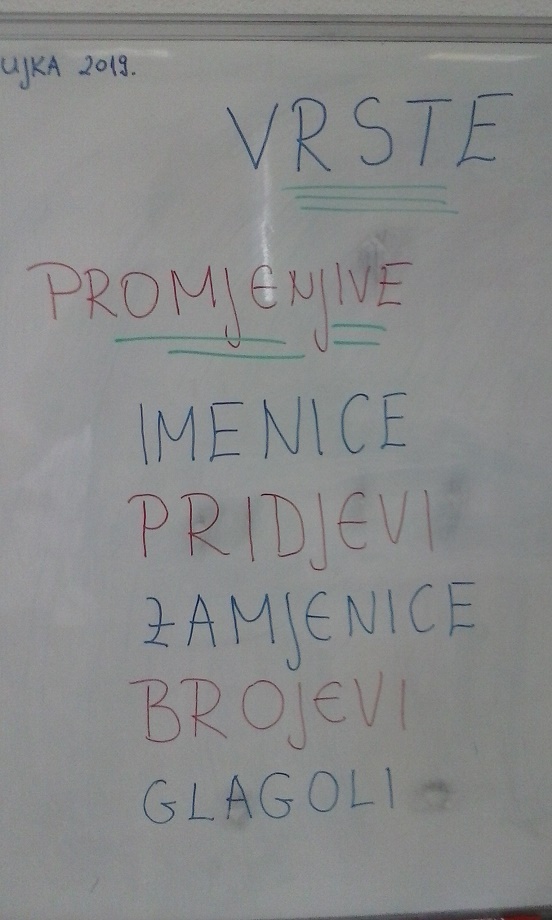 UJKA 2019.
VRSTE
PROMJENJIVE
IMENICE
PRIDJEVI
ZAMJENICE
BROJEVI
GLAGOLI